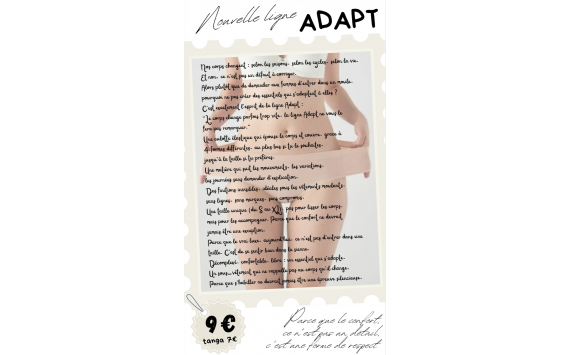 Nouvelle ligne ADAPT
Nos corps changent : selon les saisons, selon les cycles, selon la vie.
Et non, ce n'est pas un défaut à corriger.
Alors plutôt que de demander aux femmes d'entrer dans un moule,
pourquoi ne pas créer des essentiels qui s'adaptent à elles ?
C'est exactement l'esprit de la ligne Adapt :
"Le corps change parfois trop vite, la ligne Adapt ne vous le
fera pas remarquer."
Une culotte élastique qui épouse le corps et couvre, grâce à
4 formes différentes, au plus bas si tu le souhaites,
jusqu'à la taille si tu préfères.
Une matière qui suit les mouvements, les variations,
les journées sans demander d'explication.
Des finitions invisibles, idéales sous les vêtements moulants,
sans lignes, sans marques, sans compromis.
Une taille unique (du S au XL), pas pour lisser les corps,
mais pour les accompagner. Parce que le confort ne devrait
jamais être une exception.
Parce que le vrai luxe, aujourd'hui, ce n'est pas d'entrer dans une
taille. C'est de se sentir bien dans la sienne.
Décomplexé, confortable, libre : un essentiel qui s'adapte.
Un sous-vêtement qui ne rappelle pas au corps qu'il change.
Parce que s'habiller ne devrait jamais être une épreuve silencieuse.
9 €
tanga 7€
Parce que le confort,
ce n'est pas un détail,
c'est une forme de respect